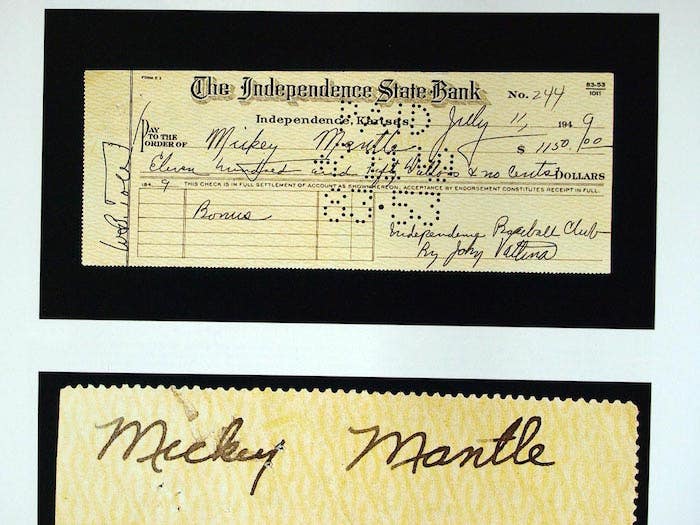 FORM E 1
The Independence State Bank
No. 244
83-53
1011
Independence, Kansas, July 11, 1949
PAY TO THE ORDER OF Mickey Mantle $ 1150.00
Eleven hundred and fifty Dollars & no cents DOLLARS
194 9 THIS CHECK IS IN FULL SETTLEMENT OF ACCOUNT AS SHOWN HEREON, ACCEPTANCE BY ENDORSEMENT CONSTITUTES RECEIPT IN FULL.
Bonus
Independence Baseball Club
By
PAID
83-53
Mickey Mantle